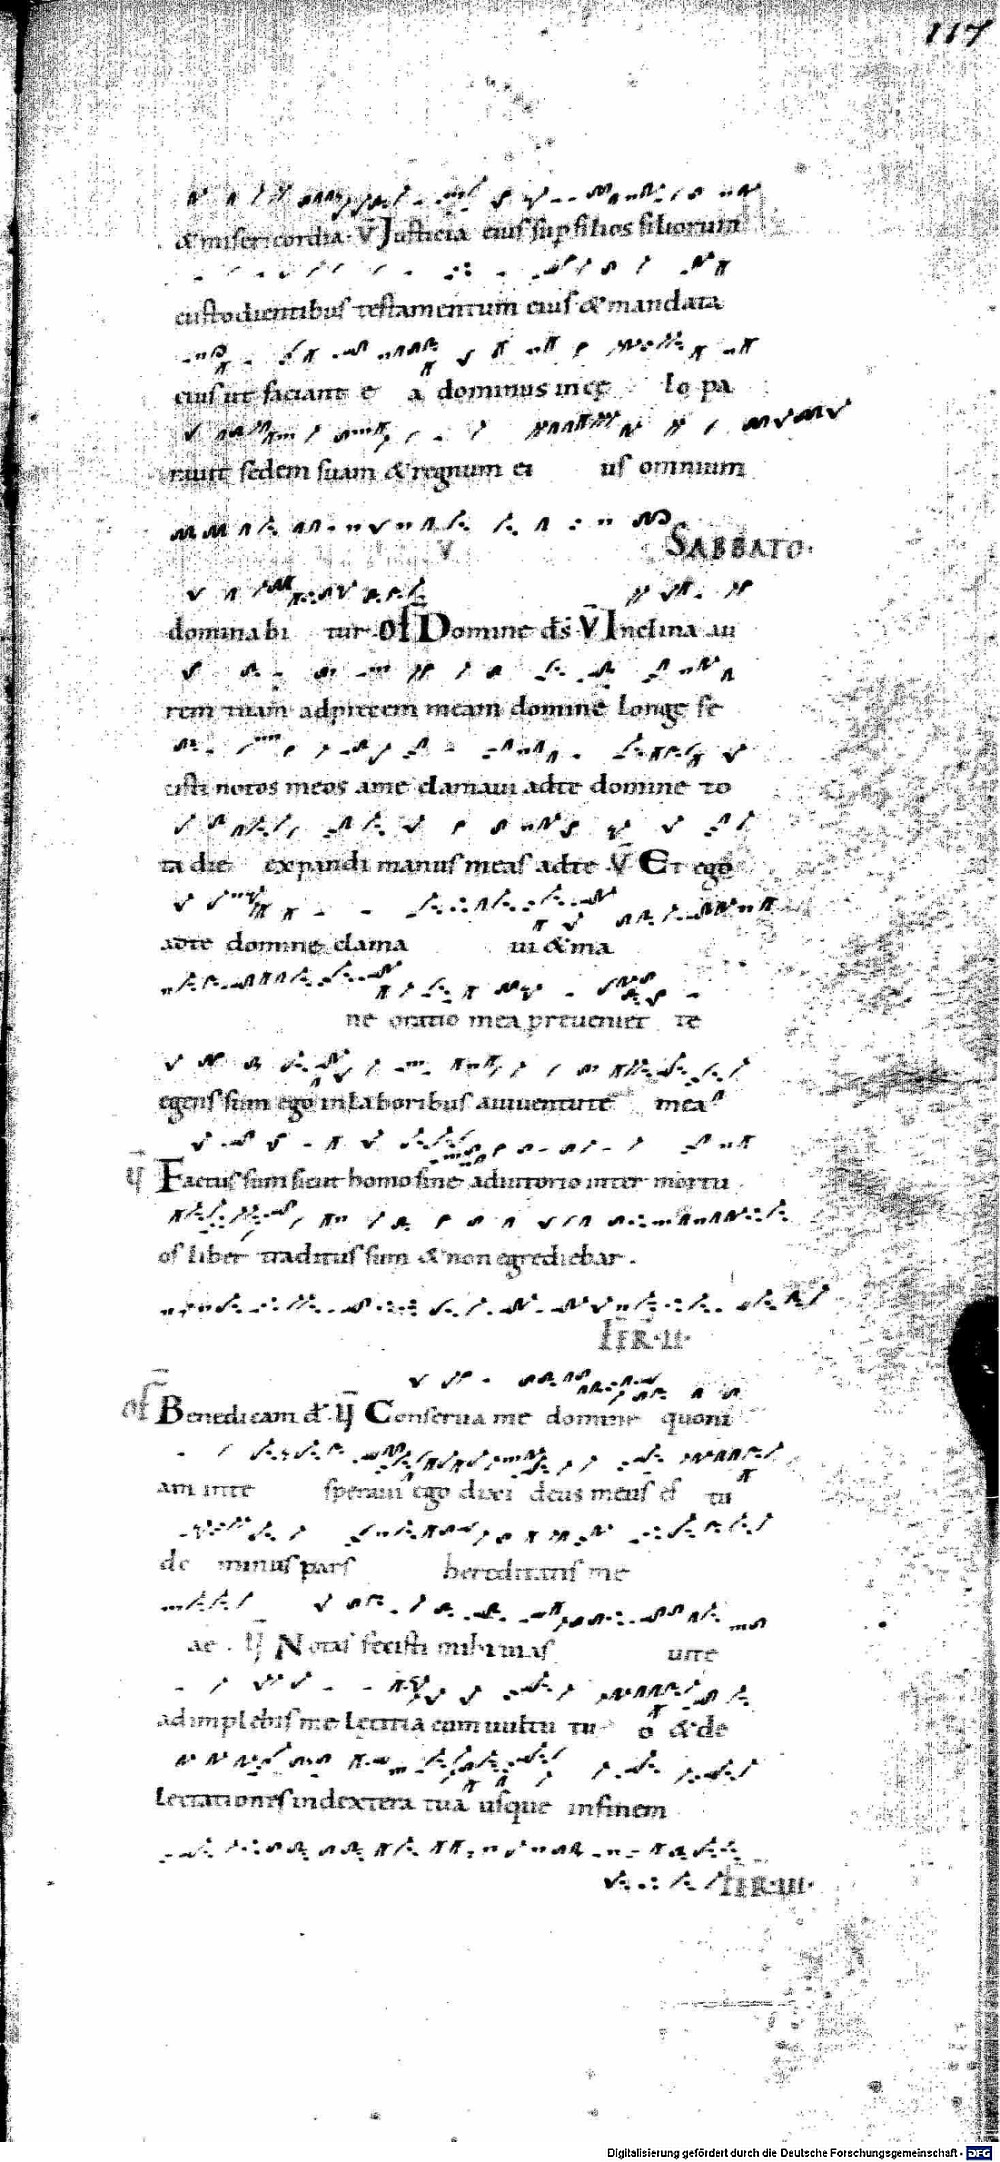 117
& misericordia · V̄ Justicia eius sup filios filiorum
custodientibus testamentum eius & mandata
eius ut faciant e a dominus in cę lo pa
rauit sedem suam & regnum ei us omnium
SABBATO·
dominabi tur. Of̄ Domine ds̄ V̄ Inclina au
rem tuam ad precem meam domine Longe fe
cisti notos meos a me clamaui ad te domine to
ta die expandi manus meas ad te V̄ Et ego
ad te domine clama ui & ma
ne oratio mea preueniet te
egens sum ego in laboribus a iuuentute mea
Factus sum sicut homo sine adiutorio inter mortu
os liber traditus sum & non egrediebar.
FER·II·
Of̄ Benedicam d Conserua me domine quoni
am in te speraui ego dixi deus meus es tu
do minus pars hereditatis me
ae. Notas fecisti mihi uias uite
adimplebis me Letitia cum uultu tu o & de
Lectationes in dextera tua usque in finem
FER·III·
Digitalisierung gefördert durch die Deutsche Forschungsgemeinschaft - DFG